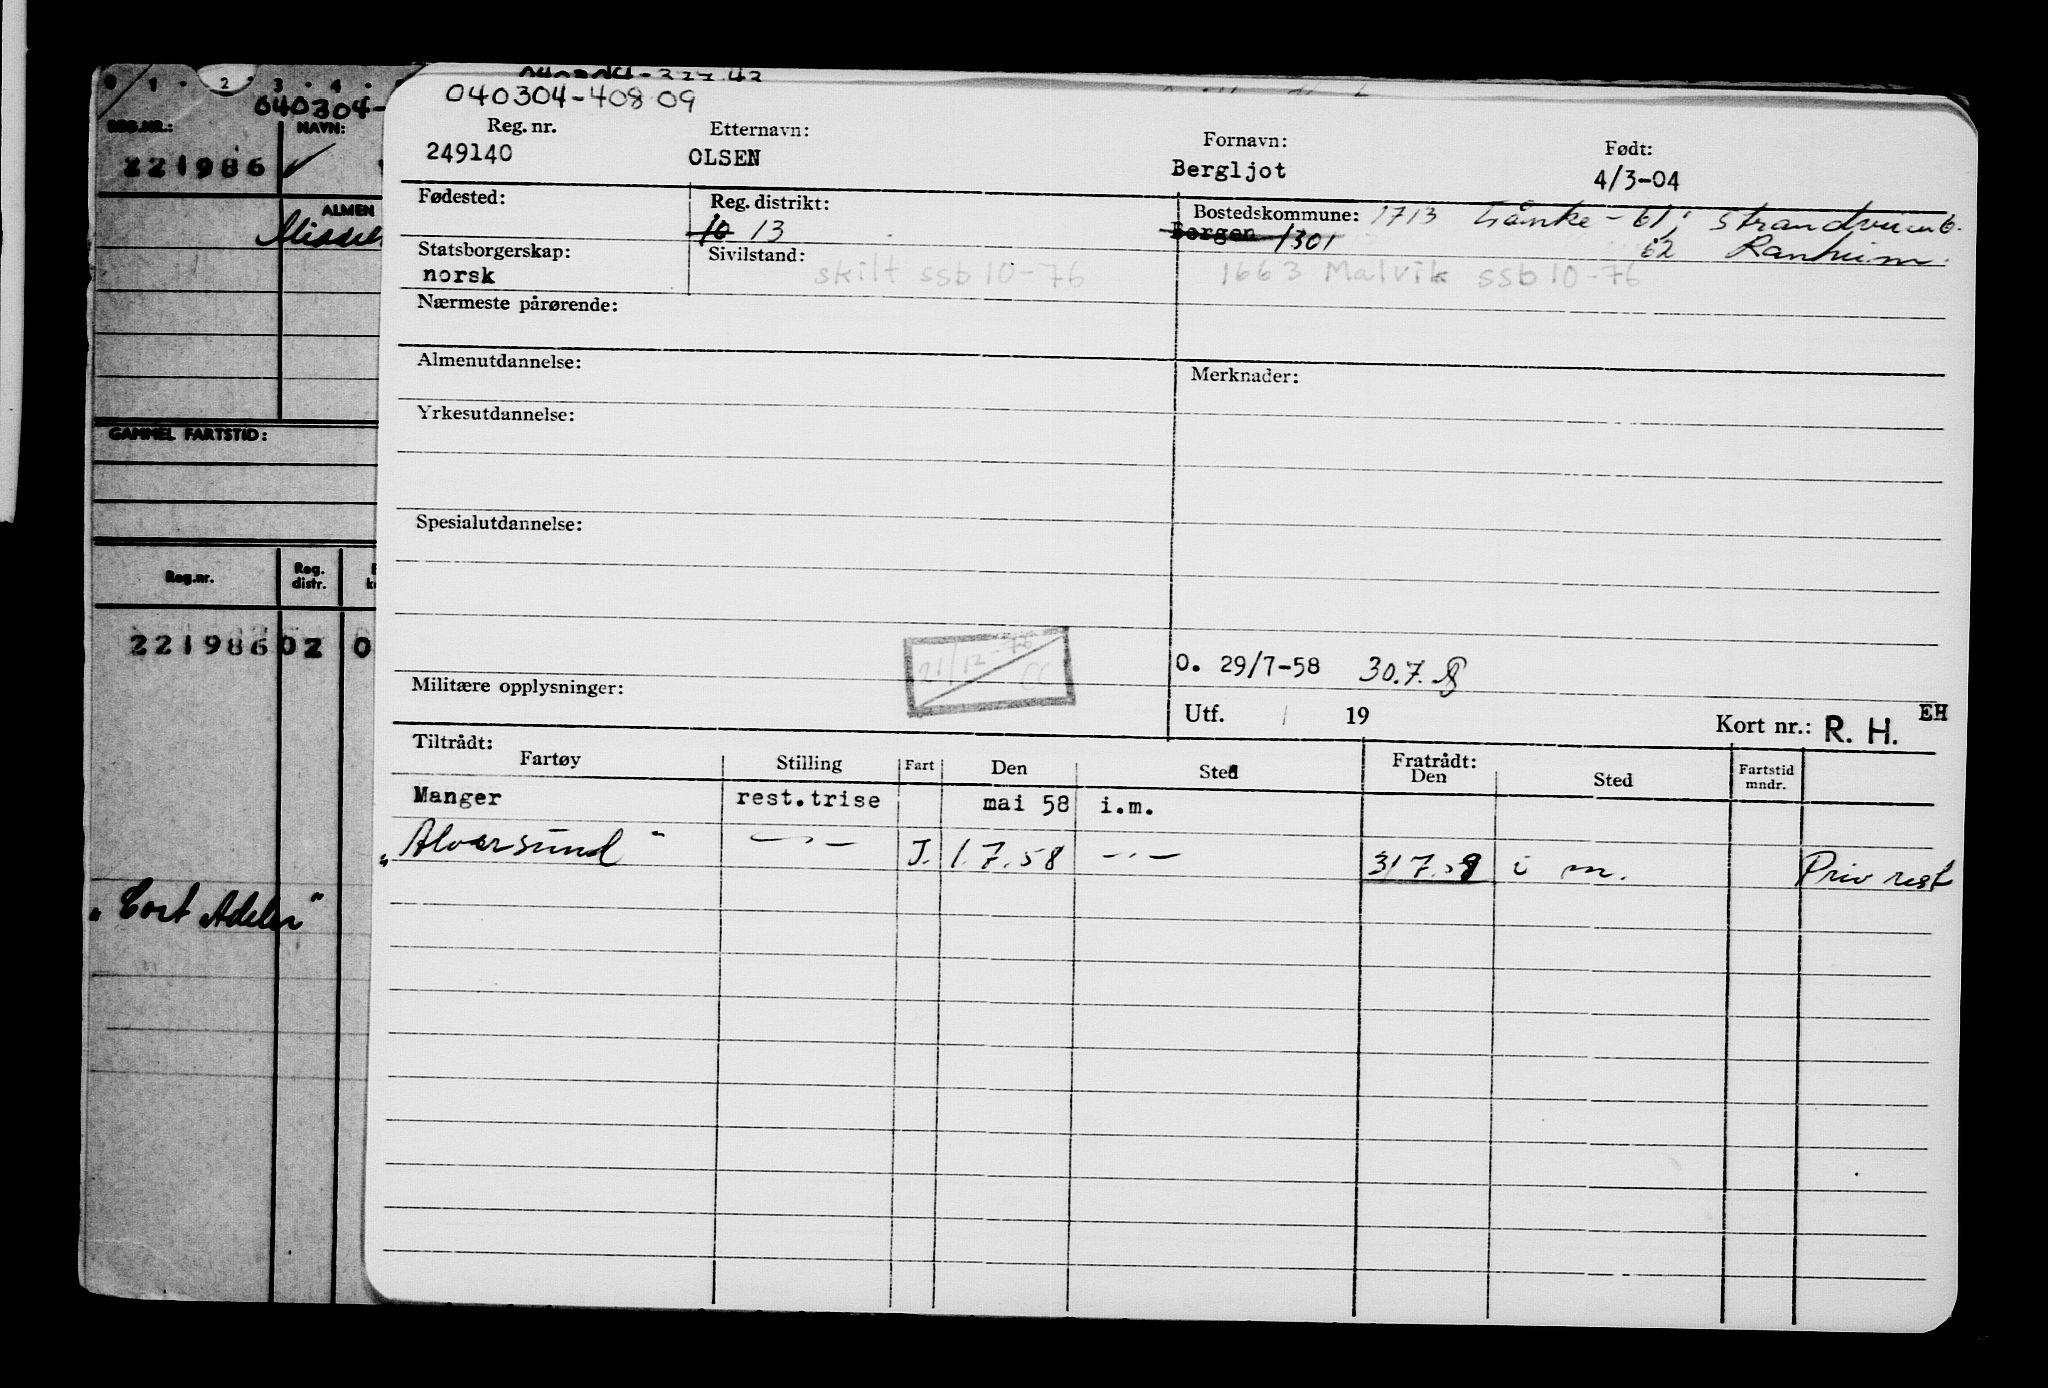 1 · 2 · 3 · 4 ·
040304-
REG.NR.: NAVN:
221986 ✓
ALMEN
Middel
GAMMEL FARTSTID:
Reg.nr. Reg. distr.
221986 02 0
"Cort Adeler"
040304-408 09
Reg. nr. Etternavn: Fornavn: Født:
249140 OLSEN Bergljot 4/3-04
Fødested: Reg. distrikt: Bostedskommune: 1713 Lånke - 61;
10 13 Bergen 1301 62 Ranheim.
Statsborgerskap: Sivilstand:
norsk skilt ssb 10-76 1663 Malvik ssb 10-76
Nærmeste pårørende:
Almenutdannelse: Merknader:
Yrkesutdannelse:
Spesialutdannelse:
21/12-76 CC
O. 29/7-58 30.7.
Militære opplysninger:
Utf. / 19 Kort nr.: R. H. EH
Tiltrådt: Fratrådt:
Fartøy Stilling Fart Den Sted Den Sted Fartstid mndr.
Manger rest.trise mai 58 i.m.
"Alversund" —"— J. 1.7.58 —"— 31 7.58 i m. Priv rest